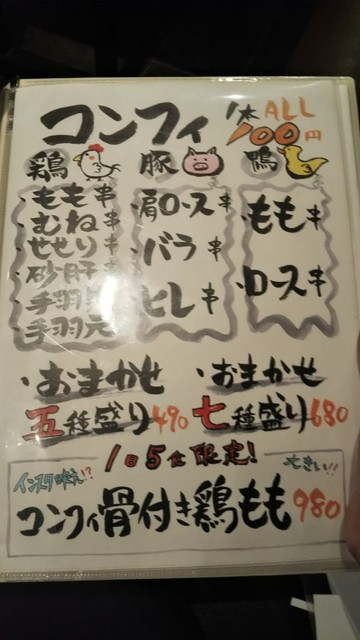 コンフィ
1本 ALL 100円
鶏
・もも串
・むね串
・せせり串
・砂肝串
・手羽
・手羽元
豚
・肩ロース串
・バラ串
・ヒレ串
鴨
・もも串
・ロース串
・おまかせ
五種盛り490
・おまかせ
七種盛り680
1日5食限定!
インスタ映え!?
大きい!!
コンフィ骨付き鶏もも980